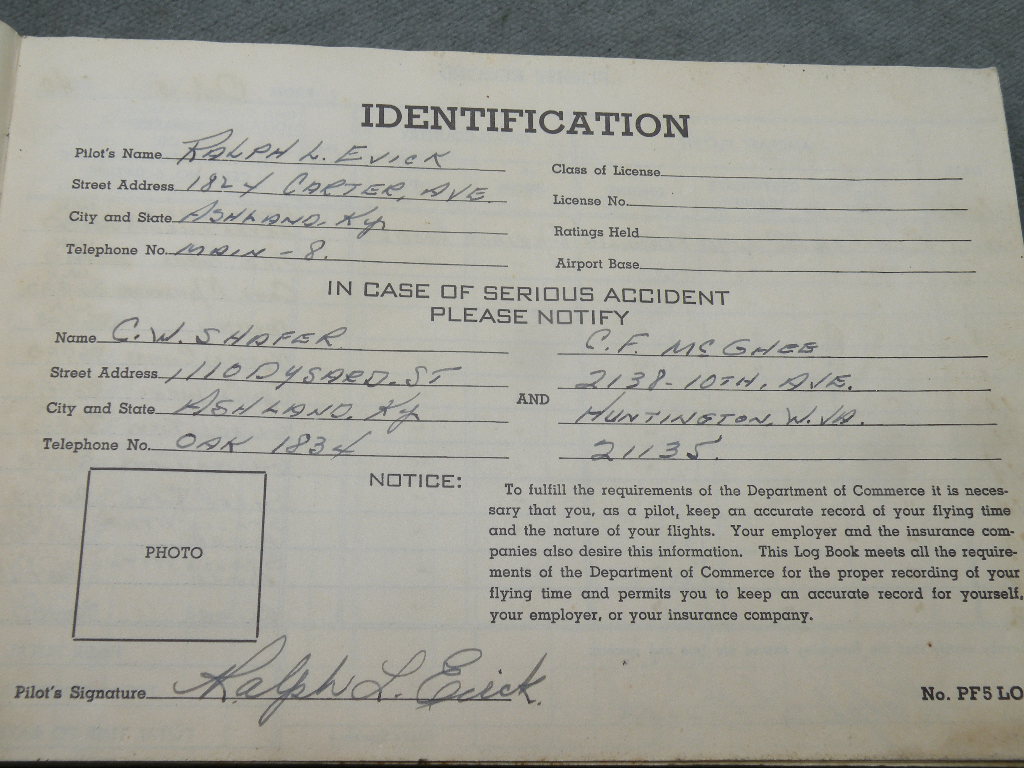 IDENTIFICATION
Pilot's Name RALPH L. EVICK
Street Address 1824 CARTER, AVE.
City and State ASHLAND, Ky
Telephone No. MAIN - 8.
Class of License
License No.
Ratings Held
Airport Base
IN CASE OF SERIOUS ACCIDENT
PLEASE NOTIFY
Name C. W. SHAFER
Street Address 1110 DYSARD. ST
City and State ASHLAND. Ky
Telephone No. OAK 1834
AND
C. F. MCGHEE
2138-10TH. AVE.
HUNTINGTON, W. VA.
21135.
PHOTO
NOTICE:
To fulfill the requirements of the Department of Commerce it is neces-
sary that you, as a pilot, keep an accurate record of your flying time
and the nature of your flights. Your employer and the insurance com-
panies also desire this information. This Log Book meets all the require-
ments of the Department of Commerce for the proper recording of your
flying time and permits you to keep an accurate record for yourself,
your employer, or your insurance company.
Pilot's Signature Ralph L. Evick.
No. PF5 LO